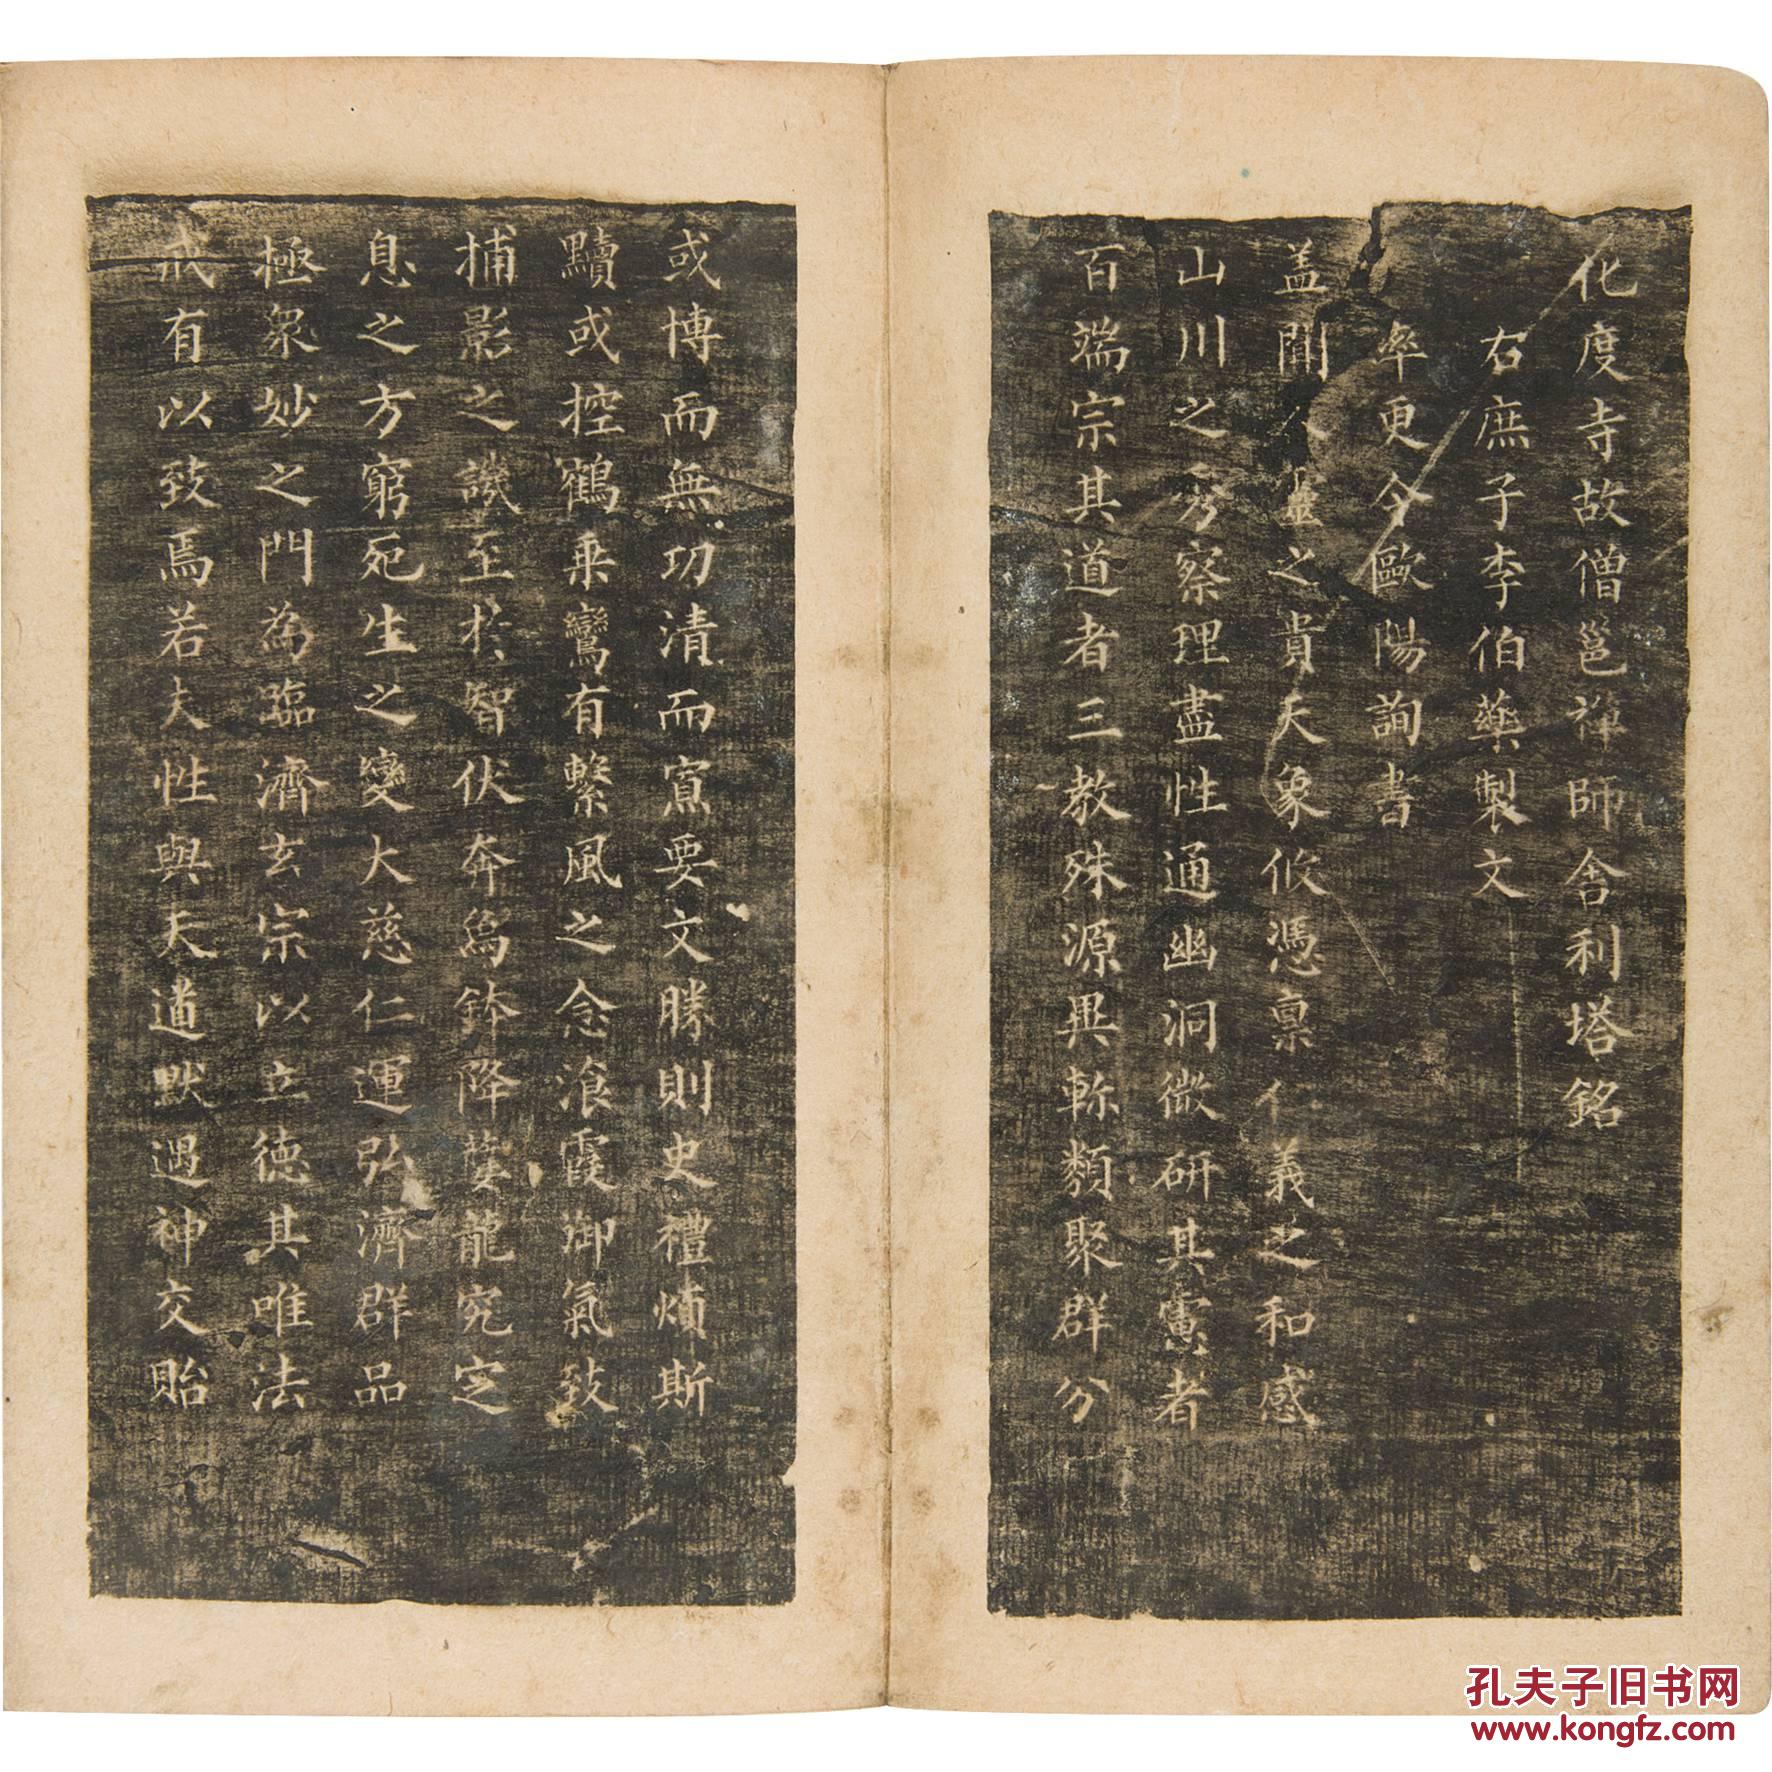 化度寺故僧邕禅師舎利塔銘
右庶子李伯藥製文
率更令歐陽詢書
盖聞人靈之貴天象攸憑稟仁義之和感
山川之秀察理盡性通幽洞微研其慮者
百端宗其道者三教殊源異軫類聚群分
或博而無功清而寡要文勝則史禮煩斯
黷或控鶴乗鸞有繫風之念飡霞御氣致
捕影之譏至於智伏奔為鉢降龍究定
息之方窮死生之變大慈仁運弘濟群品
極衆妙之門為臨濟玄宗以立德其唯法
戒有以致焉若夫性與天道默遇神交貽
孔夫子旧书网
www.kongfz.com